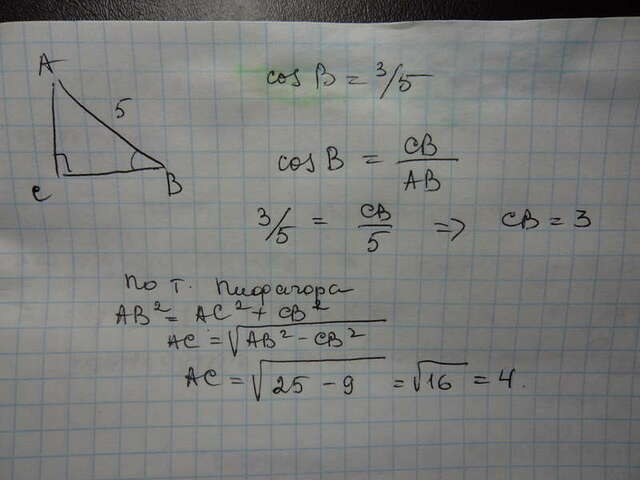 A
5
C
B
cos B = 3/5
cos B = CB/AB
3/5 = CB/5 => CB = 3
По т. Пифагора
AB² = AC² + CB²
AC = √(AB² − CB²)
AC = √(25 − 9) = √16 = 4.